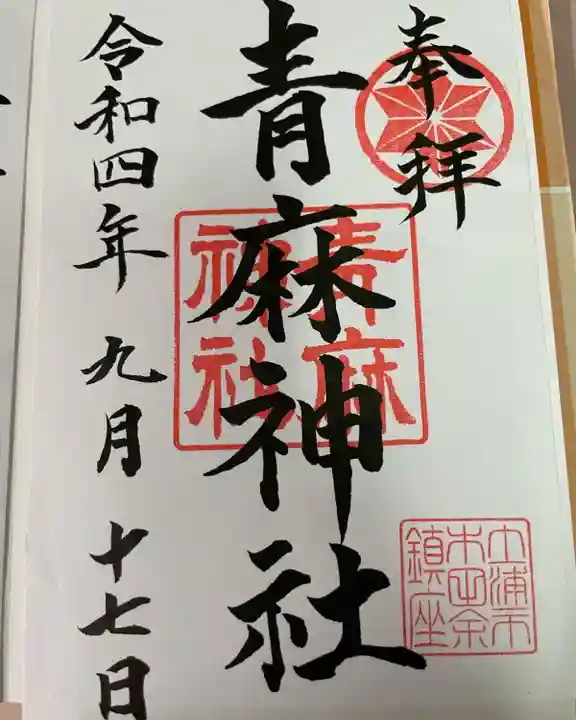 奉拝
青麻神社
青麻神社
土浦市
木田余
鎮座
令和四年 九月 十七日